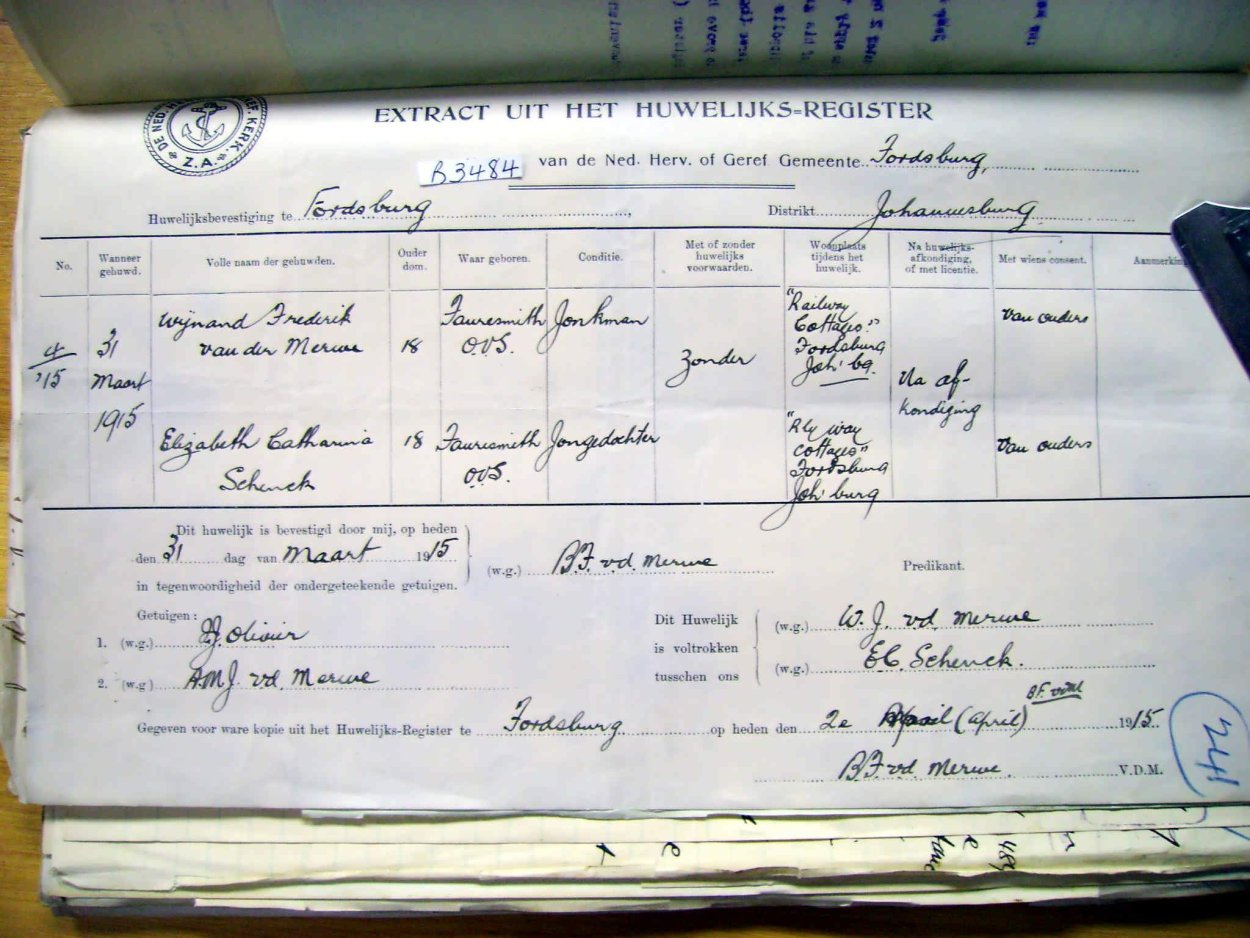 EXTRACT UIT HET HUWELIJKS=REGISTER
DE NED. KERK Z.A.
B3484
van de Ned. Herv. of Geref Gemeente Fordsburg,
Huwelijksbevestiging te Fordsburg, Distrikt Johannesburg
No. Wanneer gehuwd. Volle naam der gehuwden. Ouder dom. Waar geboren. Conditie. Met of zonder huwelijks voorwaarden. Woonplaats tijdens het huwelijk. Na huwelijks-afkondiging, of met licentie. Met wiens consent. Aanmerking
4/'15
31 Maart 1915
Wijnand Frederik
van der Merwe
18
Fauresmith
O.V.S.
Jonkman
zonder
"Railway
Cottages."
Fordsburg
Joh'bg.
Na af-
kondiging
van ouders
Elizabeth Catharina
Schenck
18
Fauresmith
O.V.S.
Jongedochter
"Rly way
Cottages"
Fordsburg
Joh'burg
van ouders
Dit huwelijk is bevestigd door mij, op heden
den 31 dag van Maart 1915
in tegenwoordigheid der ondergeteekende getuigen.
(w.g.) B.F. v.d. Merwe Predikant.
Getuigen:
1. (w.g.) Olivier
2. (w.g) A.M.J. v.d. Merwe
Dit Huwelijk
is voltrokken
tusschen ons
(w.g.) W. J. v.d. Merwe
(w.g.) E.C. Schenck.
Gegeven voor ware kopie uit het Huwelijks-Register te Fordsburg op heden den 2e April (April) 1915.
B.F. v.d. Merwe. V.D.M.
241